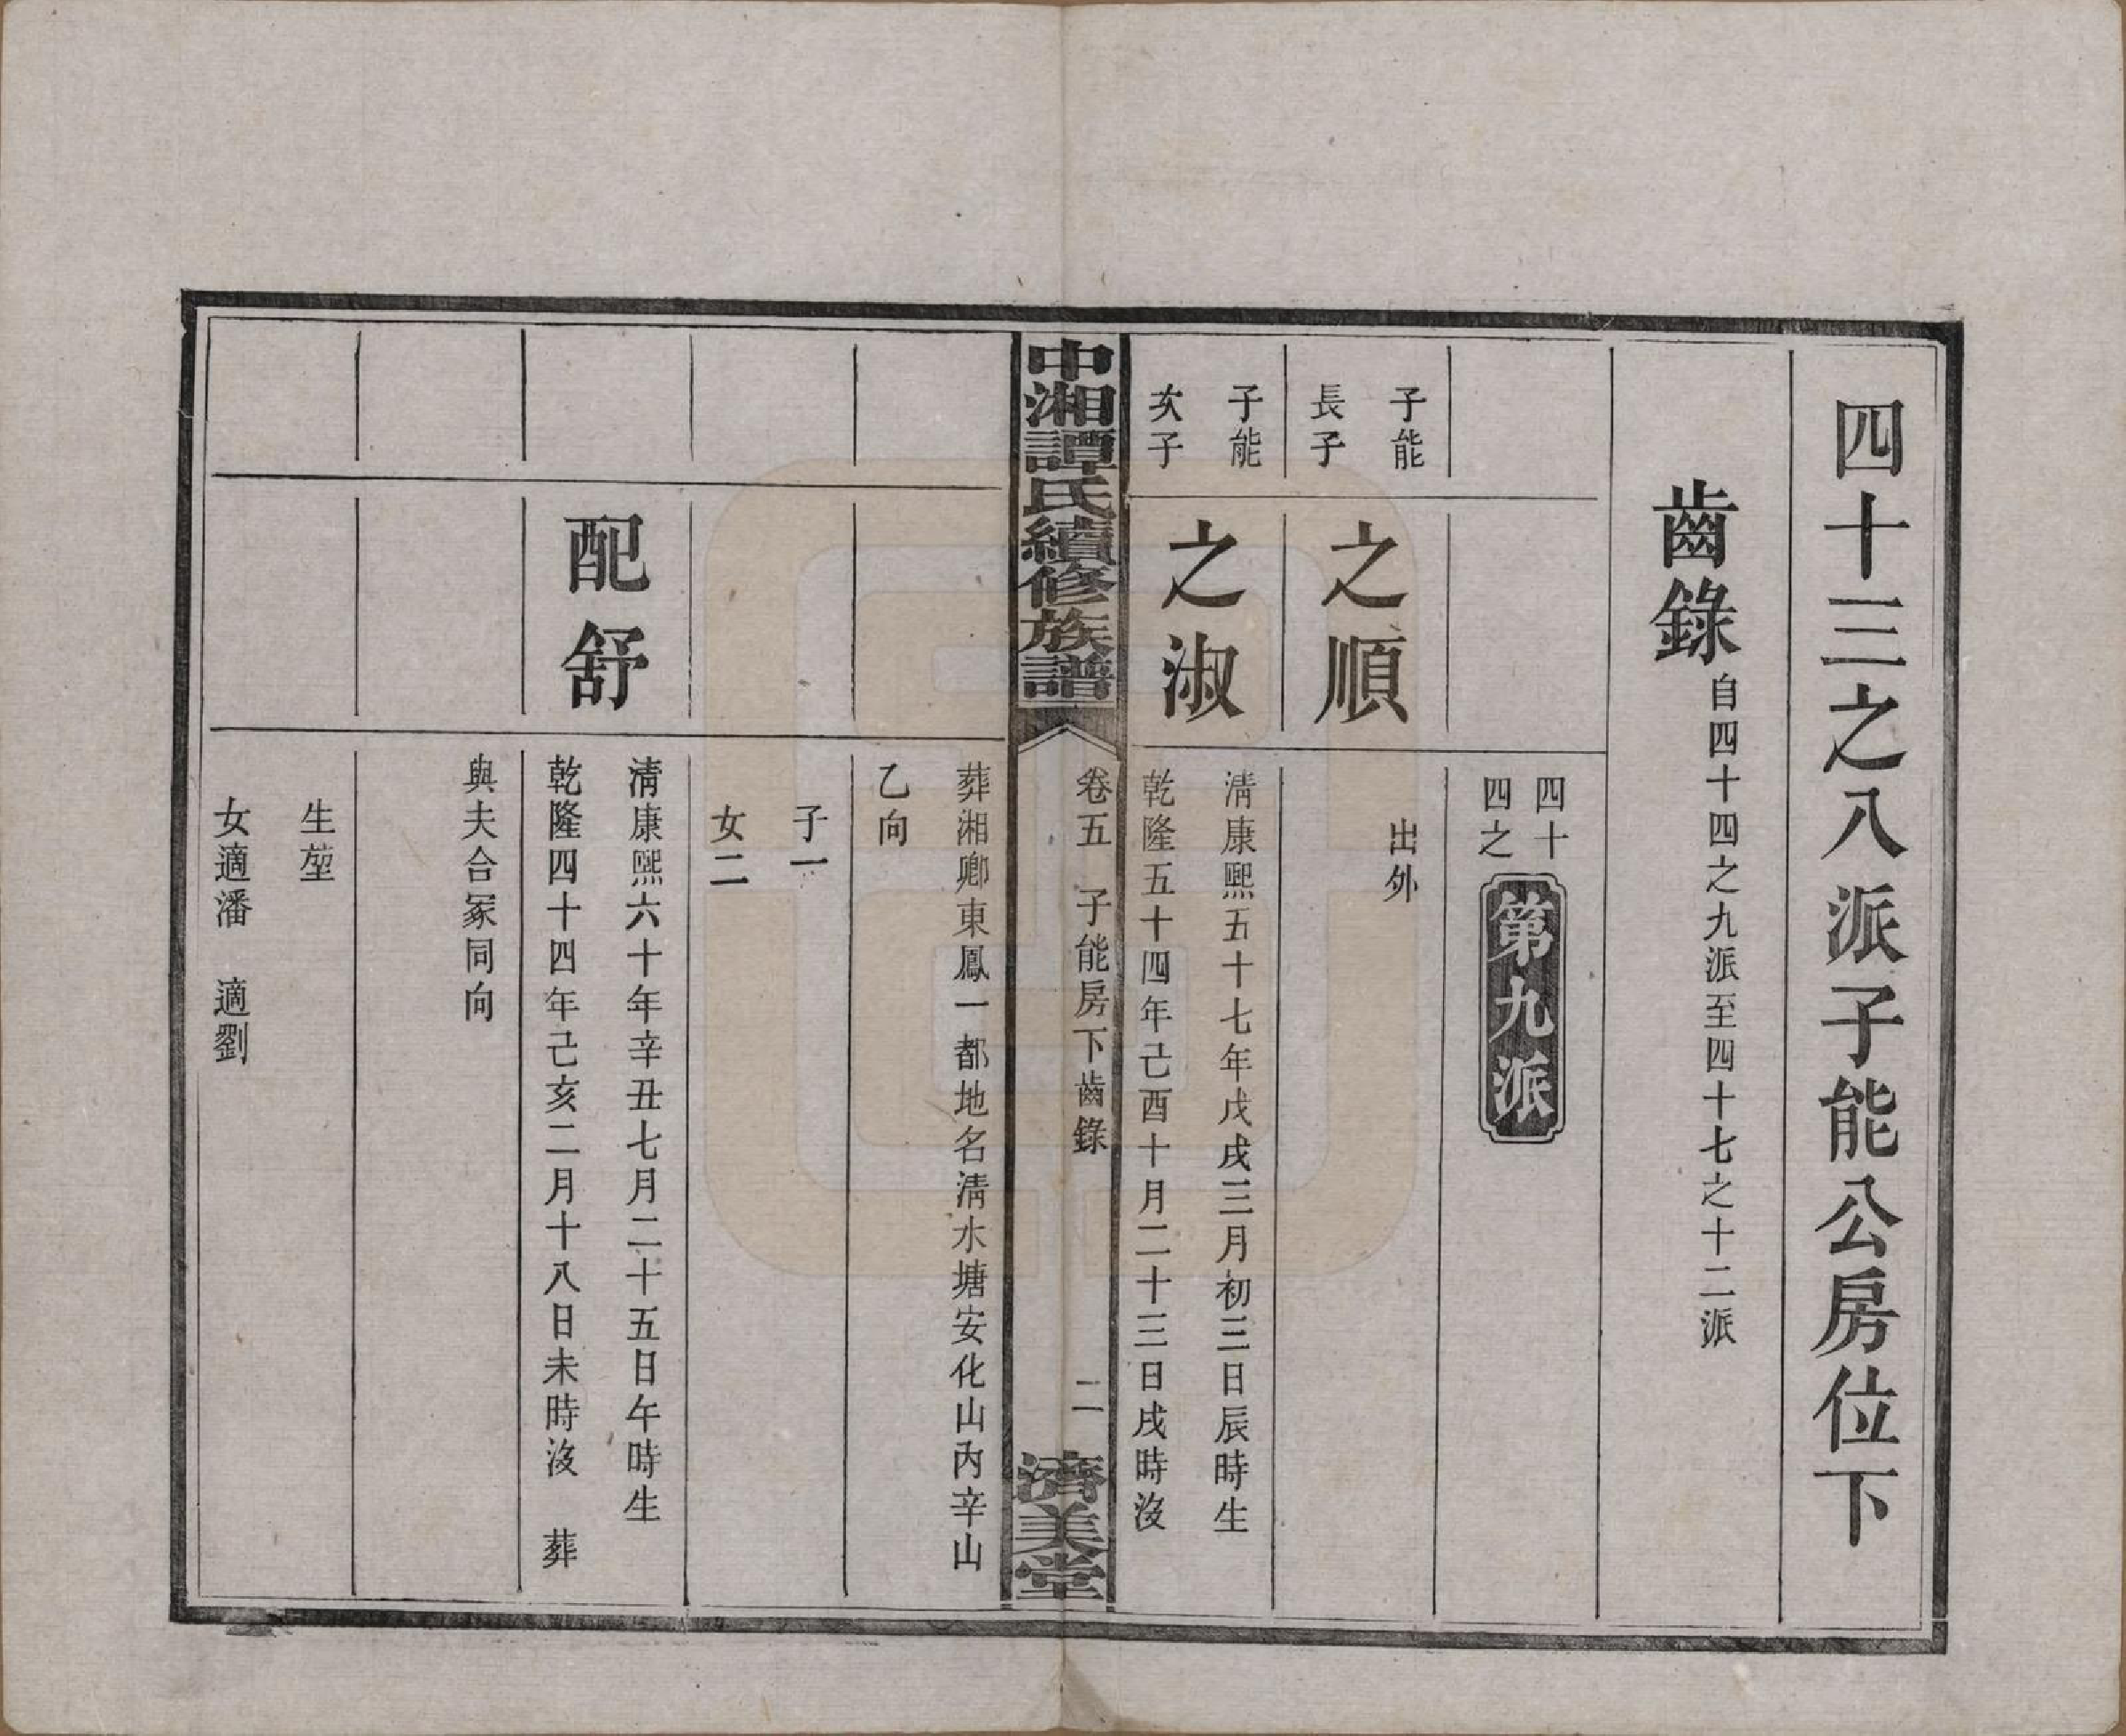 四十三之八派子能公房位下
齒錄 自四十四之九派至四十七之十二派
四十四之 第九派
子能長子
之順
出外
子能次子
之淑
清康熙五十七年戊戌三月初三日辰時生
乾隆五十四年己酉十月二十三日戌時沒
中湘譚氏續修族譜
卷五 子能房下齒錄
二
濟美堂
葬湘鄉東鳳一都地名清水塘安化山內辛山
乙向
子一
女二
配舒
清康熙六十年辛丑七月二十五日午時生
乾隆四十四年己亥二月十八日未時沒 葬
與夫合冢同向
生堃
女適潘 適劉